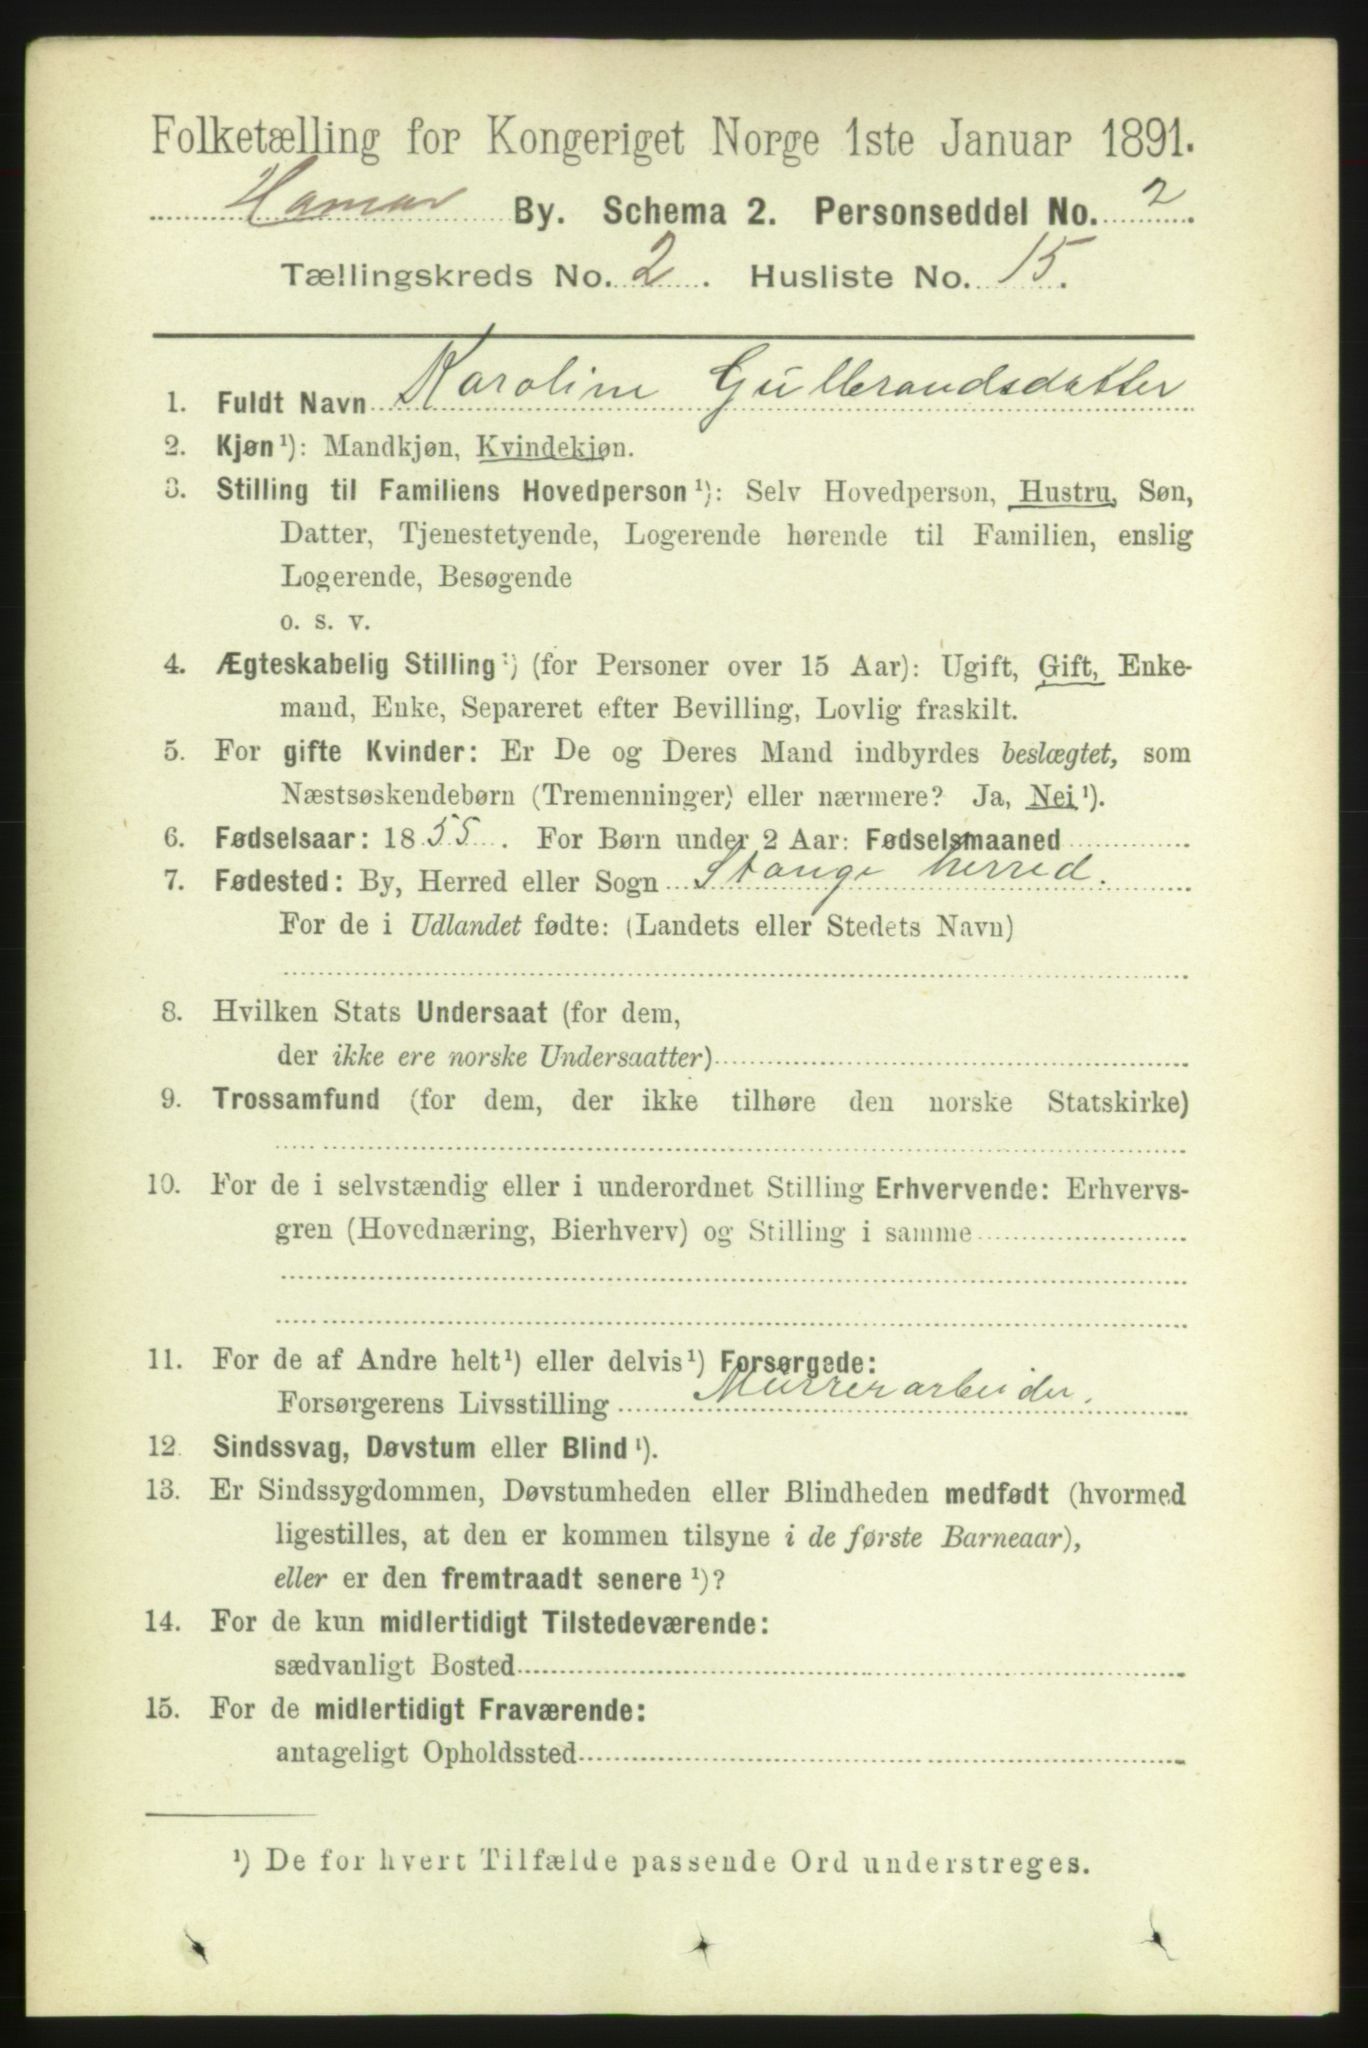 Folketælling for Kongeriget Norge 1ste Januar 1891.
Hamar By. Schema 2. Personseddel No. 2.
Tællingskreds No. 2. Husliste No. 15.
1. Fuldt Navn Karoline Gulbrandsdatter
2. Kjøn¹): Mandkjøn, Kvindekjøn.
3. Stilling til Familiens Hovedperson¹): Selv Hovedperson, Hustru, Søn,
Datter, Tjenestetyende, Logerende hørende til Familien, enslig
Logerende, Besøgende
o. s. v.
4. Ægteskabelig Stilling¹) (for Personer over 15 Aar): Ugift, Gift, Enke-
mand, Enke, Separeret efter Bevilling, Lovlig fraskilt.
5. For gifte Kvinder: Er De og Deres Mand indbyrdes beslægtet, som
Næstsøskendebørn (Tremenninger) eller nærmere? Ja, Nei¹).
6. Fødselsaar: 1855. For Børn under 2 Aar: Fødselsmaaned
7. Fødested: By, Herred eller Sogn Stange herred.
For de i Udlandet fødte: (Landets eller Stedets Navn)
8. Hvilken Stats Undersaat (for dem,
der ikke ere norske Undersaatter)
9. Trossamfund (for dem, der ikke tilhøre den norske Statskirke)
10. For de i selvstændig eller i underordnet Stilling Erhvervende: Erhvervs-
gren (Hovednæring, Bierhverv) og Stilling i samme
11. For de af Andre helt¹) eller delvis¹) Forsørgede:
Forsørgerens Livsstilling Murrerarbeider.
12. Sindssvag, Døvstum eller Blind¹).
13. Er Sindssygdommen, Døvstumheden eller Blindheden medfødt (hvormed
ligestilles, at den er kommen tilsyne i de første Barneaar),
eller er den fremtraadt senere¹)?
14. For de kun midlertidigt Tilstedeværende:
sædvanligt Bosted
15. For de midlertidigt Fraværende:
antageligt Opholdssted
¹) De for hvert Tilfælde passende Ord understreges.